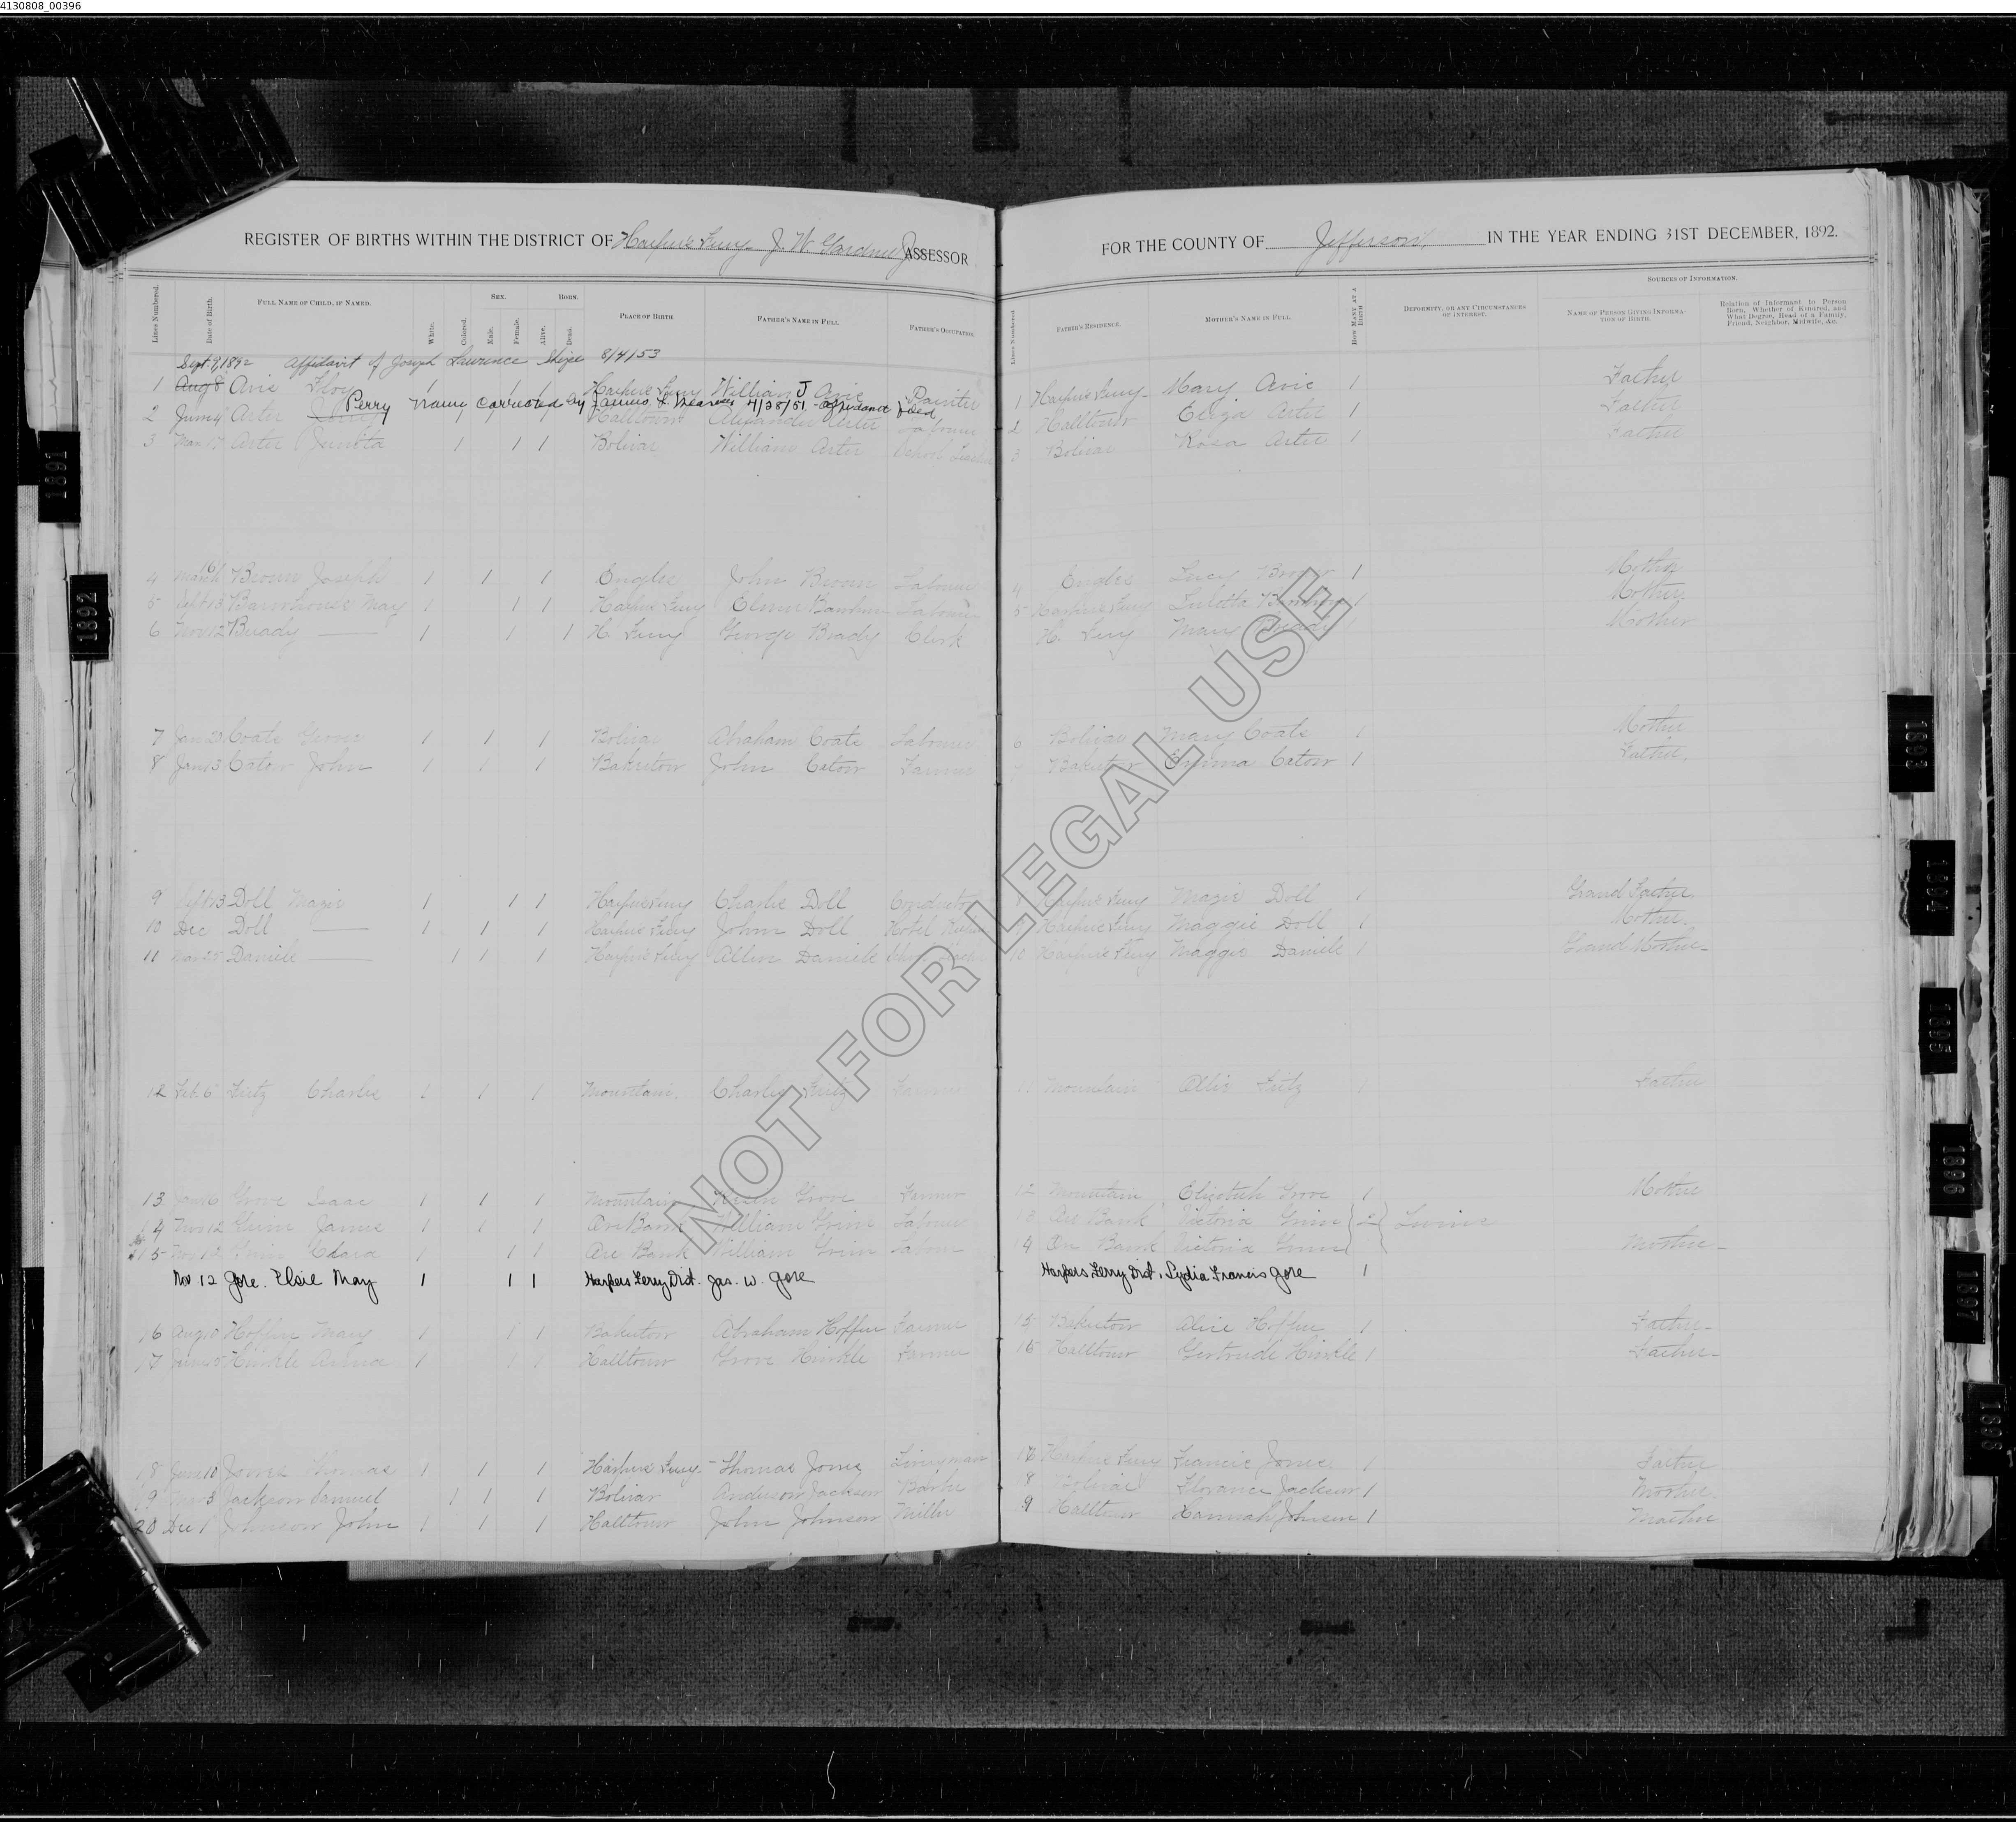 4130808_00396
REGISTER OF BIRTHS WITHIN THE DISTRICT OF Harpers Ferry J. W. Gardner Jr ASSESSOR
Lines Numbered. Date of Birth. FULL NAME OF CHILD, IF NAMED. White. Colored. SEX. Male. Female. BORN. Alive. Dead. PLACE OF BIRTH. FATHER'S NAME IN FULL. FATHER'S OCCUPATION.
Sept 9, 1892 Affidavit of Joseph Lawrence 8/4/53
1 Aug 8 Avie Floy 1 1 1 Harpers Ferry William J Avie Painter
Perry Name corrected by 4/28/51 affidavit filed
2 June 4 Arter 1 1 1 Halltown Alexander Arter Laborer
3 Mar 17 Arter Junita 1 1 1 Bolivar William Arter School
4 March 16 Brown Joseph 1 1 1 Engles John Brown Laborer
5 Sept 13 Barnhouse May 1 1 1 Harpers Ferry Elmer Laborer
6 Nov 12 Brady 1 1 1 H. Ferry George Brady Clerk
7 Jan 20 Coats 1 1 1 Bolivar Abraham Coats Laborer
8 Jan 13 Caton John 1 1 1 Bakerton John Caton Farmer
9 Sept 13 Doll Magie 1 1 1 Harpers Ferry Charlie Doll Conductor
10 Dec Doll 1 1 1 Harpers Ferry John Doll Hotel
11 Mar 25 Daniels 1 1 1 Harpers Ferry Allen Daniels School
12 Feb. 6 Fritz Charlie 1 1 1 Mountain. Charlie Fritz Farmer
13 Grove Isaac 1 1 1 Mountain Grove Farmer
14 Nov 12 Grim James 1 1 1 Ore Bank William Grim Laborer
15 Nov 12 Grim Clara 1 1 1 Ore Bank William Grim Labour
Nov 12 Gore. Elsie May 1 1 1 Harpers Ferry Dist. Jas. W. Gore
16 Aug 10 Hoffer Mary 1 1 1 Bakerton Abraham Hoffer Farmer
17 Hinkle 1 1 1 Halltown Grove Hinkle Farmer
18 June 10 Jones Thomas 1 1 1 Harpers Ferry Thomas Jones Liveryman
19 Mar 3 Jackson Samuel 1 1 1 Bolivar Anderson Jackson
20 Dec 1 Johnson John 1 1 1 Halltown John Johnson Miller
FOR THE COUNTY OF Jefferson, IN THE YEAR ENDING 31ST DECEMBER, 1892.
Lines Numbered. FATHER'S RESIDENCE. MOTHER'S NAME IN FULL. HOW MANY AT A BIRTH DEFORMITY, OR ANY CIRCUMSTANCES OF INTEREST. SOURCES OF INFORMATION. NAME OF PERSON GIVING INFORMATION OF BIRTH. Relation of Informant to Person Born, Whether of Kindred, and What Degree, Head of a Family, Friend, Neighbor, Midwife, &c.
1 Harpers Ferry Mary Avie 1 Father
2 Halltown Eliza Arter 1 Father
3 Bolivar Rosa Arter 1 Father
4 Engles Lucy Brown 1 Mother
5 Harpers Ferry 1 Mother
H. Ferry Mary Brady Mother
6 Bolivar Mary Coats 1 Mother
7 Bakerton Emma Caton 1 Father.
8 Harpers Ferry Magie Doll 1 Grand Father.
9 Harpers Ferry Maggie Doll 1 Mother.
10 Harpers Ferry Maggie Daniels 1 Grand Mother
11 Mountain Ollie Fritz 1 Father
12 Mountain Elizabeth Grove 1 Mother
13 Ore Bank Victoria Grim 2 Twins
14 Ore Bank Victoria Grim Mother
Harpers Ferry Dist. Lydia Francis Gore 1
15 Bakerton Alice Hoffer 1 Father
16 Halltown Gertrude Hinkle 1 Father
17 Harpers Ferry Francis Jones 1 Father
18 Bolivar Florance Jackson 1 Mother.
19 Halltown Hannah Johnson 1 Mother
NOT FOR LEGAL USE
1891
1892
1893
1894
1895
1896
1897
1898